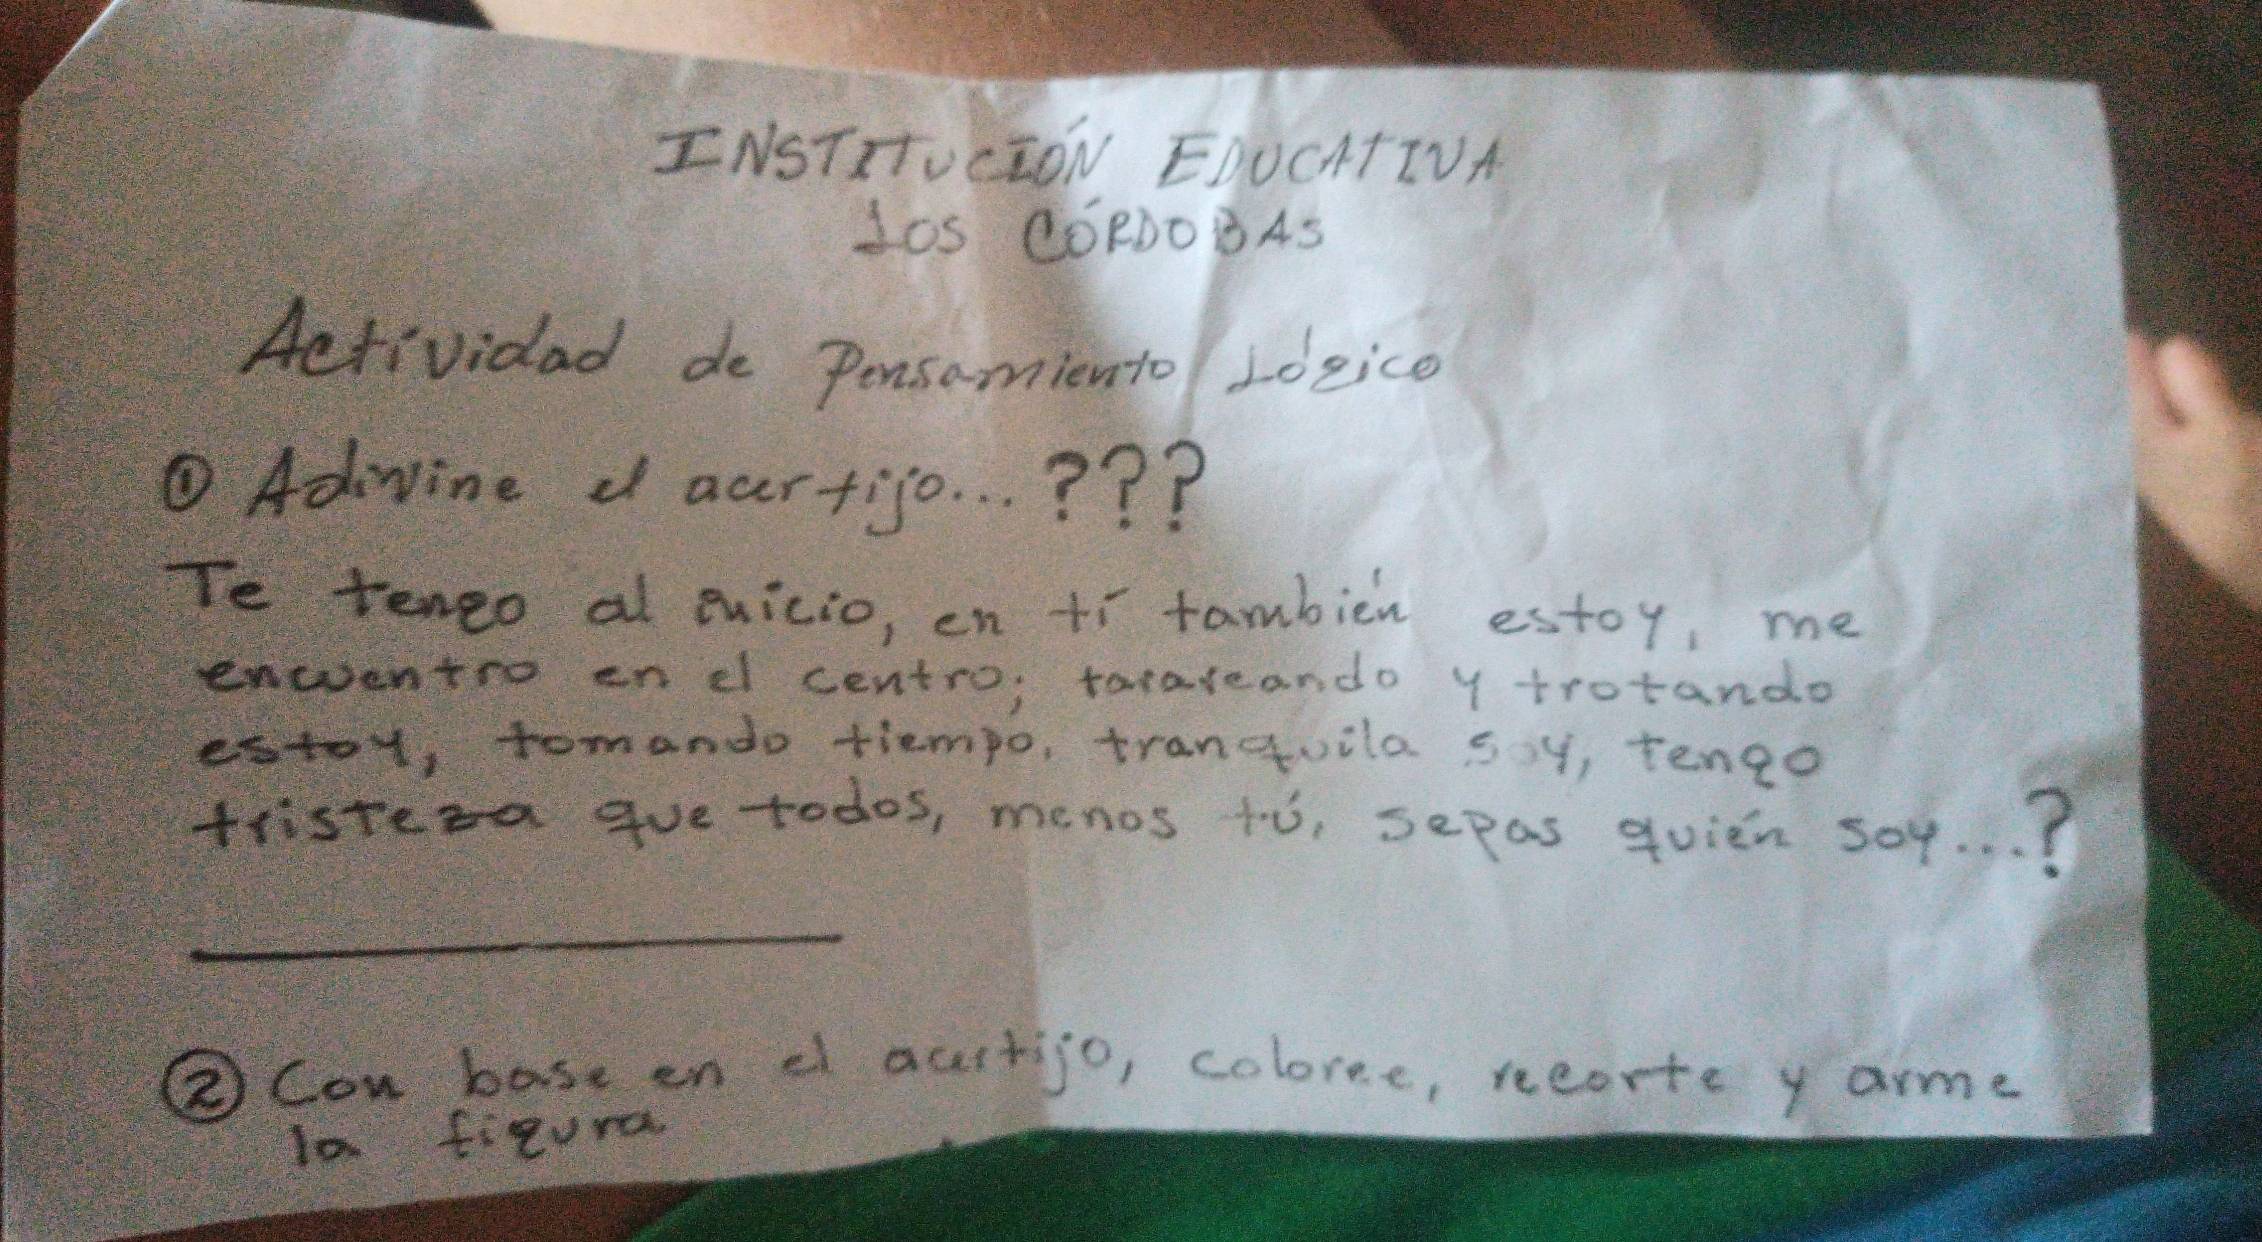 INSTITUCIÓN EDUCATIVA
LOS CÓRDOBAS
Actividad de Pensamiento Lógico
① Adivine el acertijo...???
Te tengo al inicio, en tí también estoy, me
encuentro en el centro; tarareando y trotando
estoy, tomando tiempo, tranquila soy, tengo
tristeza que todos, menos tú, sepas quién soy...?
② Con base en el acertijo, coloree, recorte y arme
la figura